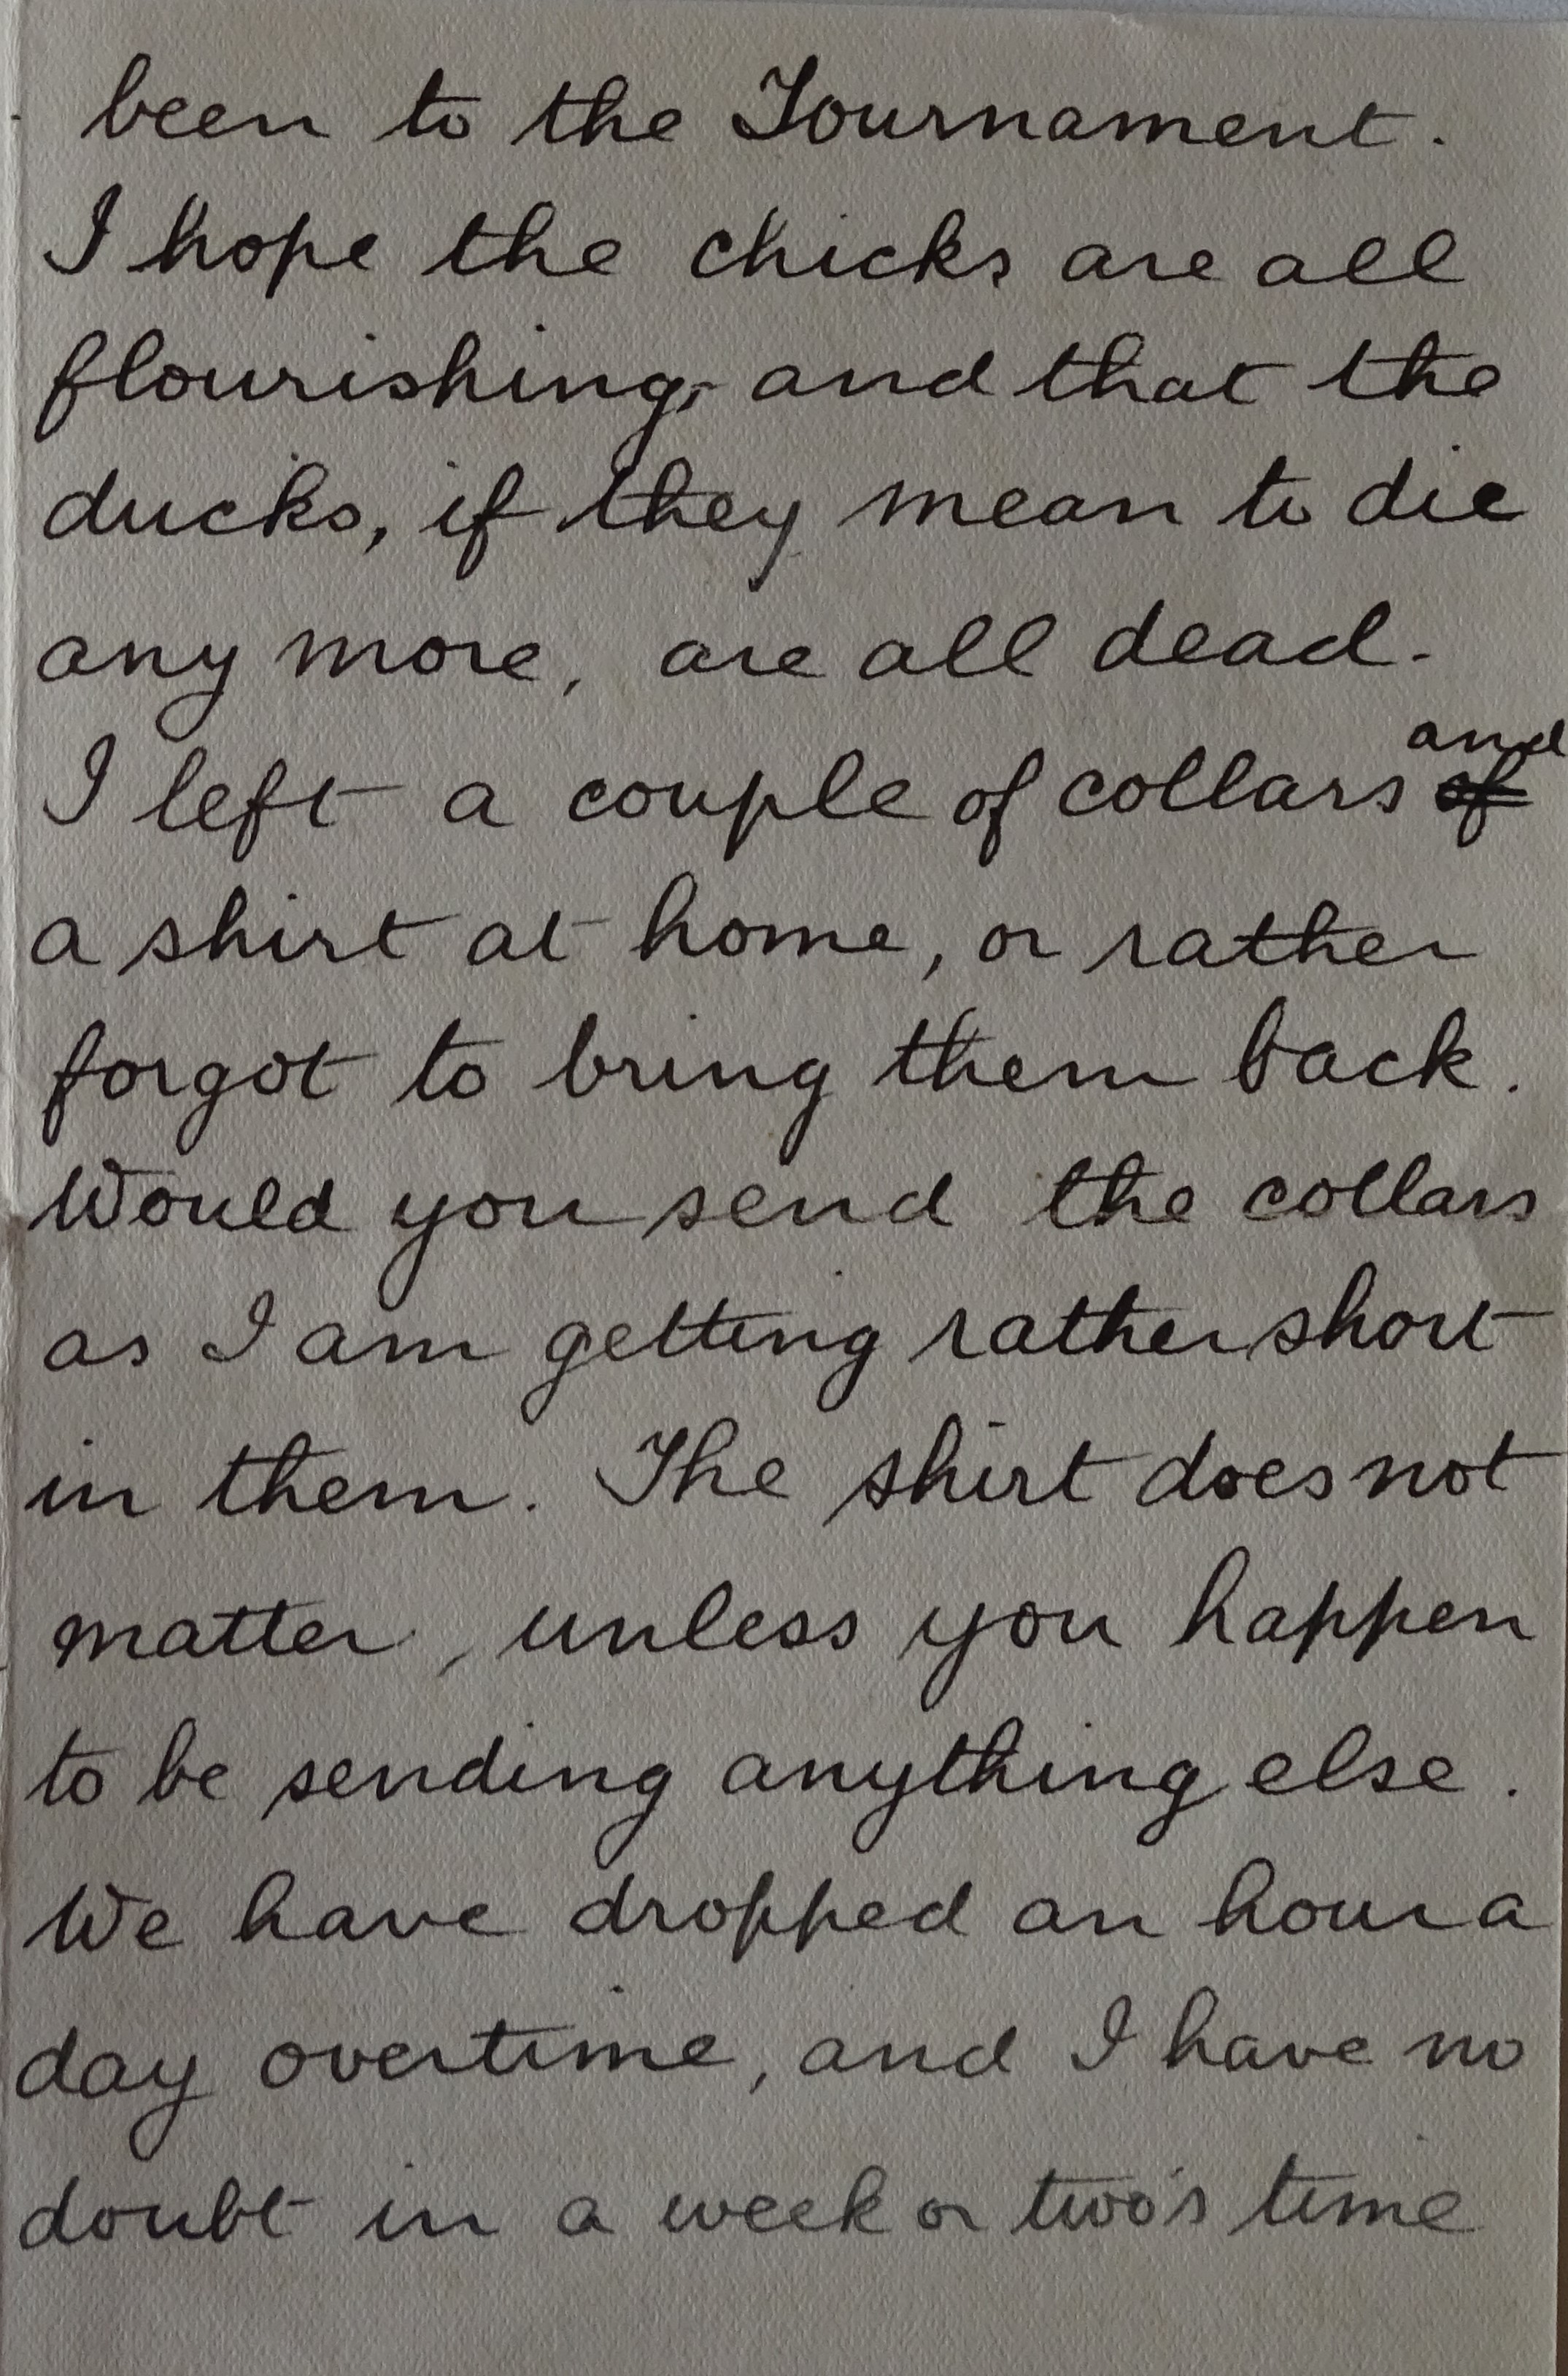 been to the Tournament.
I hope the chicks are all
flourishing, and that the
ducks, if they mean to die
any more, are all dead.
I left a couple of collars of and
a shirt at home, or rather
forgot to bring them back.
Would you send the collars
as I am getting rather short
in them. The shirt does not
matter, unless you happen
to be sending anything else.
We have dropped an hour a
day overtime, and I have no
doubt in a week or two's time